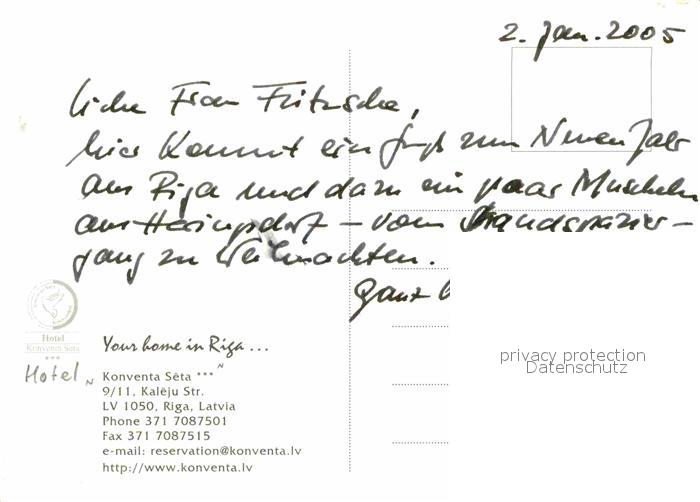 2. Jan. 2005
liebe Frau Fritzsche,
hier kommt ein Gruß zum Neuen Jahr
aus Riga und dazu ein paar Muscheln
aus Heringsdorf – vom Strandspazier-
gang zu Weihnachten.
Ganz
Hotel
Konventa Sēta
***
Your home in Riga ...
Hotel " Konventa Sēta *** "
9/11, Kalēju Str.
LV 1050, Riga, Latvia
Phone 371 7087501
Fax 371 7087515
e-mail: reservation@konventa.lv
http://www.konventa.lv
privacy protection
Datenschutz